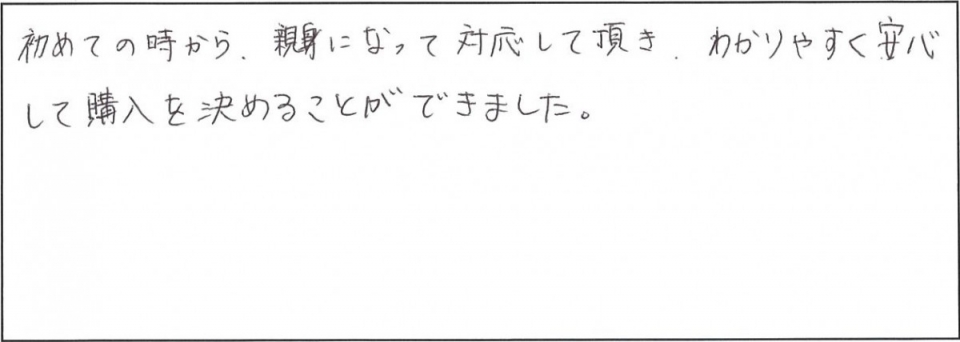 初めての時から、親身になって対応して頂き、わかりやすく安心
して購入を決めることができました。